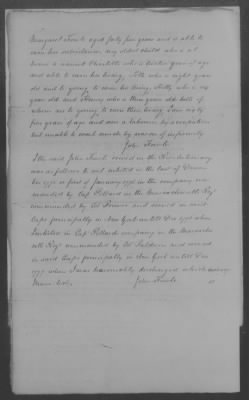 Margaret aged forty five years and is able to
earn her subsistence, my oldest child who is at
home is named Charlotte who is twelve years of age
and able to earn her living, Polly who is eight years
old and to young to earn her living, Sally who is six
years old and who is three years old both of
whom are to young to earn their living. I am sixty
five years of age and now a labourer by occupation
but unable to work much by reason of infirmity
John
I the said John served in the Revolutionary
war as follows to wit enlisted in the last of Decem-
ber 1775 or first of January 1776 in the company com-
manded by Capt Pillard in the Massachusetts Regt
commanded by Col and served in said
Corps principally in New York until Dec 1776 when
I enlisted in Capt Pillard company in the Massachu-
setts Regt commanded by Col Baldwin and served
in said Corps principally in New York until Dec
1779 when I was honorably discharged
John